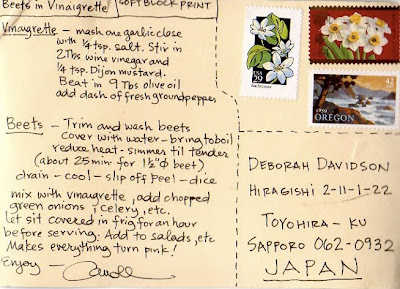 Beets in Vinaigrette
SOFT BLOCK PRINT
Vinaugrette - mash one garlic clove
with 1/4 tsp. salt. Stir in
2 Tbs wine vinegar and
1/4 tsp. Dijon mustard.
Beat in 9 Tbs olive oil
add dash of fresh ground pepper
Beets - Trim and wash beets
Cover with water - bring to boil
reduce heat - simmer til tender
(about 25 min for 1 1/2"Φ beet)
drain - cool - slip off peel - dice
mix with vinaigrette, add chopped
green onions, celery, etc.
Let sit covered in frig for an hour
before serving. Add to salads, etc
Makes everything turn pink!
Enjoy -
USA
29
1859
OREGON
DEBORAH DAVIDSON
HIRAGISHI 2-11-1-22
TOYOHIRA-KU
SAPPORO 062-0932
JAPAN